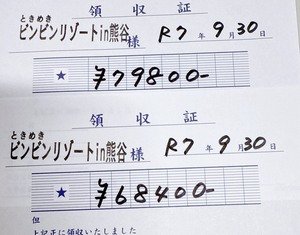 領収証
ときめき
ピンピンリゾートin熊谷様 R7年9月30日
★ ¥79800-
領収証
ときめき
ピンピンリゾートin熊谷様 R7年9月30日
★ ¥68400-
但
上記正に領収いたしました